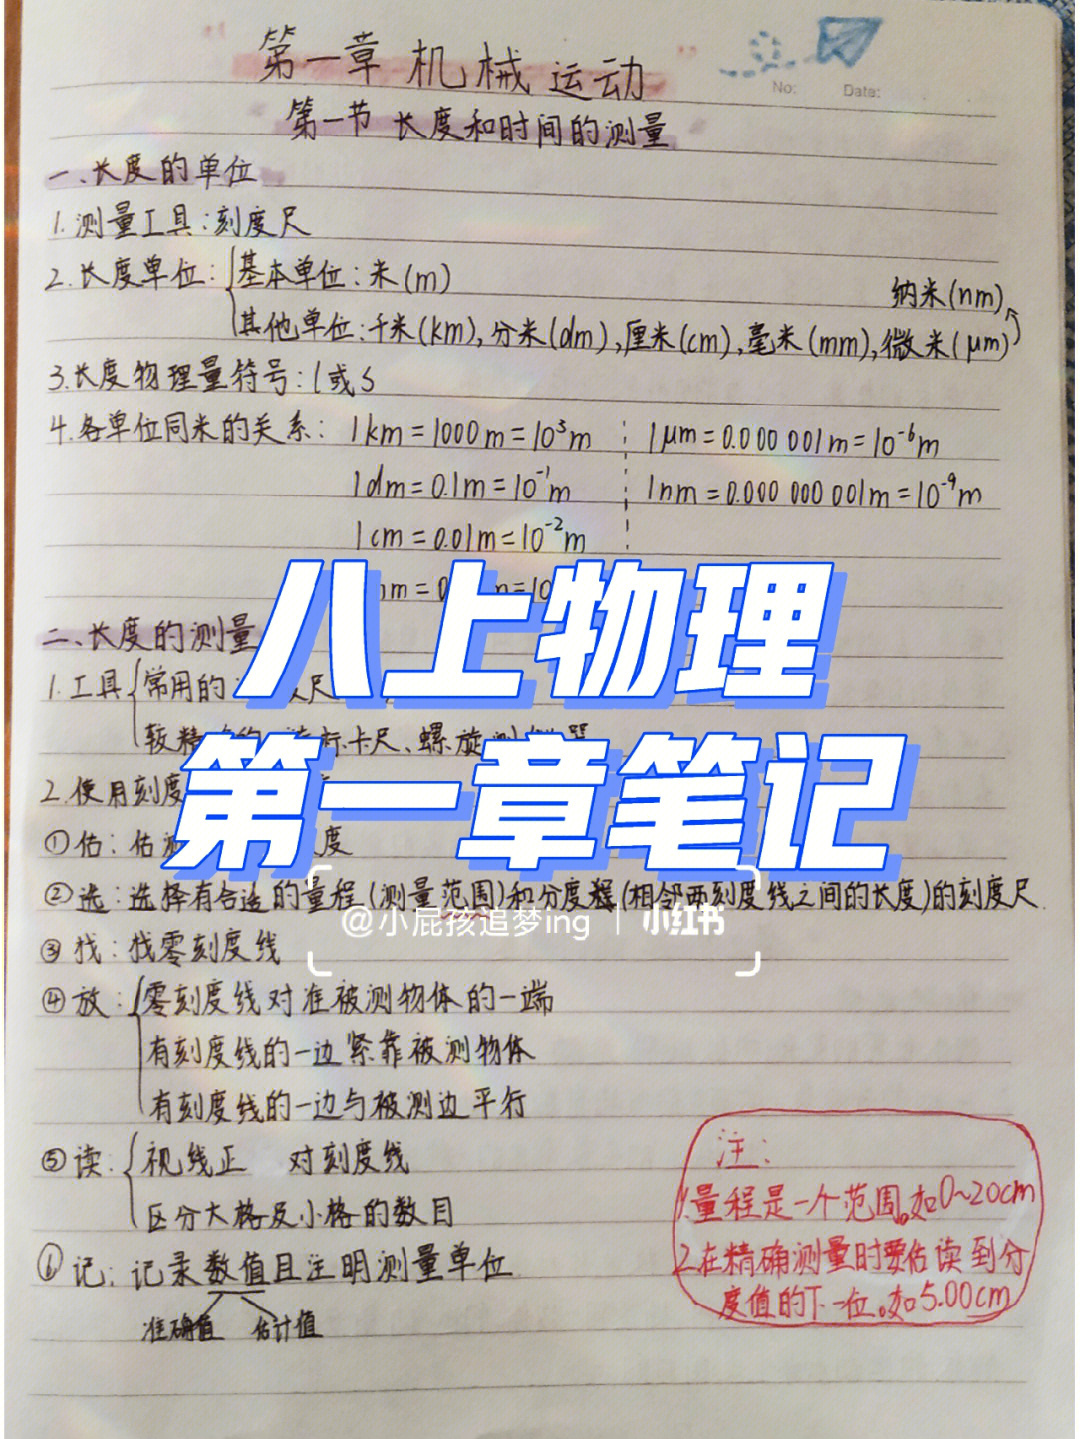 第一章 机械运动
No: Date:
第一节 长度和时间的测量
一、长度的单位
1.测量工具:刻度尺
2.长度单位: 基本单位:米(m)
纳米(nm)
其他单位:千米(km),分米(dm),厘米(cm),毫米(mm),微米(μm)
3.长度物理量符号:l或s
4.各单位同米的关系: 1km=1000m=10³m 1μm=0.000 001m=10⁻⁶m
1dm=0.1m=10⁻¹m 1nm=0.000 000 001m=10⁻⁹m
1cm=0.01m=10⁻²m
八上物理
二、长度的测量
1.工具 常用的 尺
较精 卡尺、螺旋测
第一章笔记
2.使用刻度
①估:估 度
②选:选择有合适的量程(测量范围)和分度(相邻两刻度线之间的长度)的刻度尺
@小屁孩追梦ing 小红书
③找:找零刻度线
④放: 零刻度线对准被测物体的一端
有刻度线的一边紧靠被测物体
有刻度线的一边与被测边平行
⑤读: 视线正 对刻度线
区分大格及小格的数目
⑥记:记录数值且注明测量单位
准确值 估计值
注:
1.量程是一个范围。如0~20cm
2.在精确测量时要估读到分
度值的下一位。如5.00cm